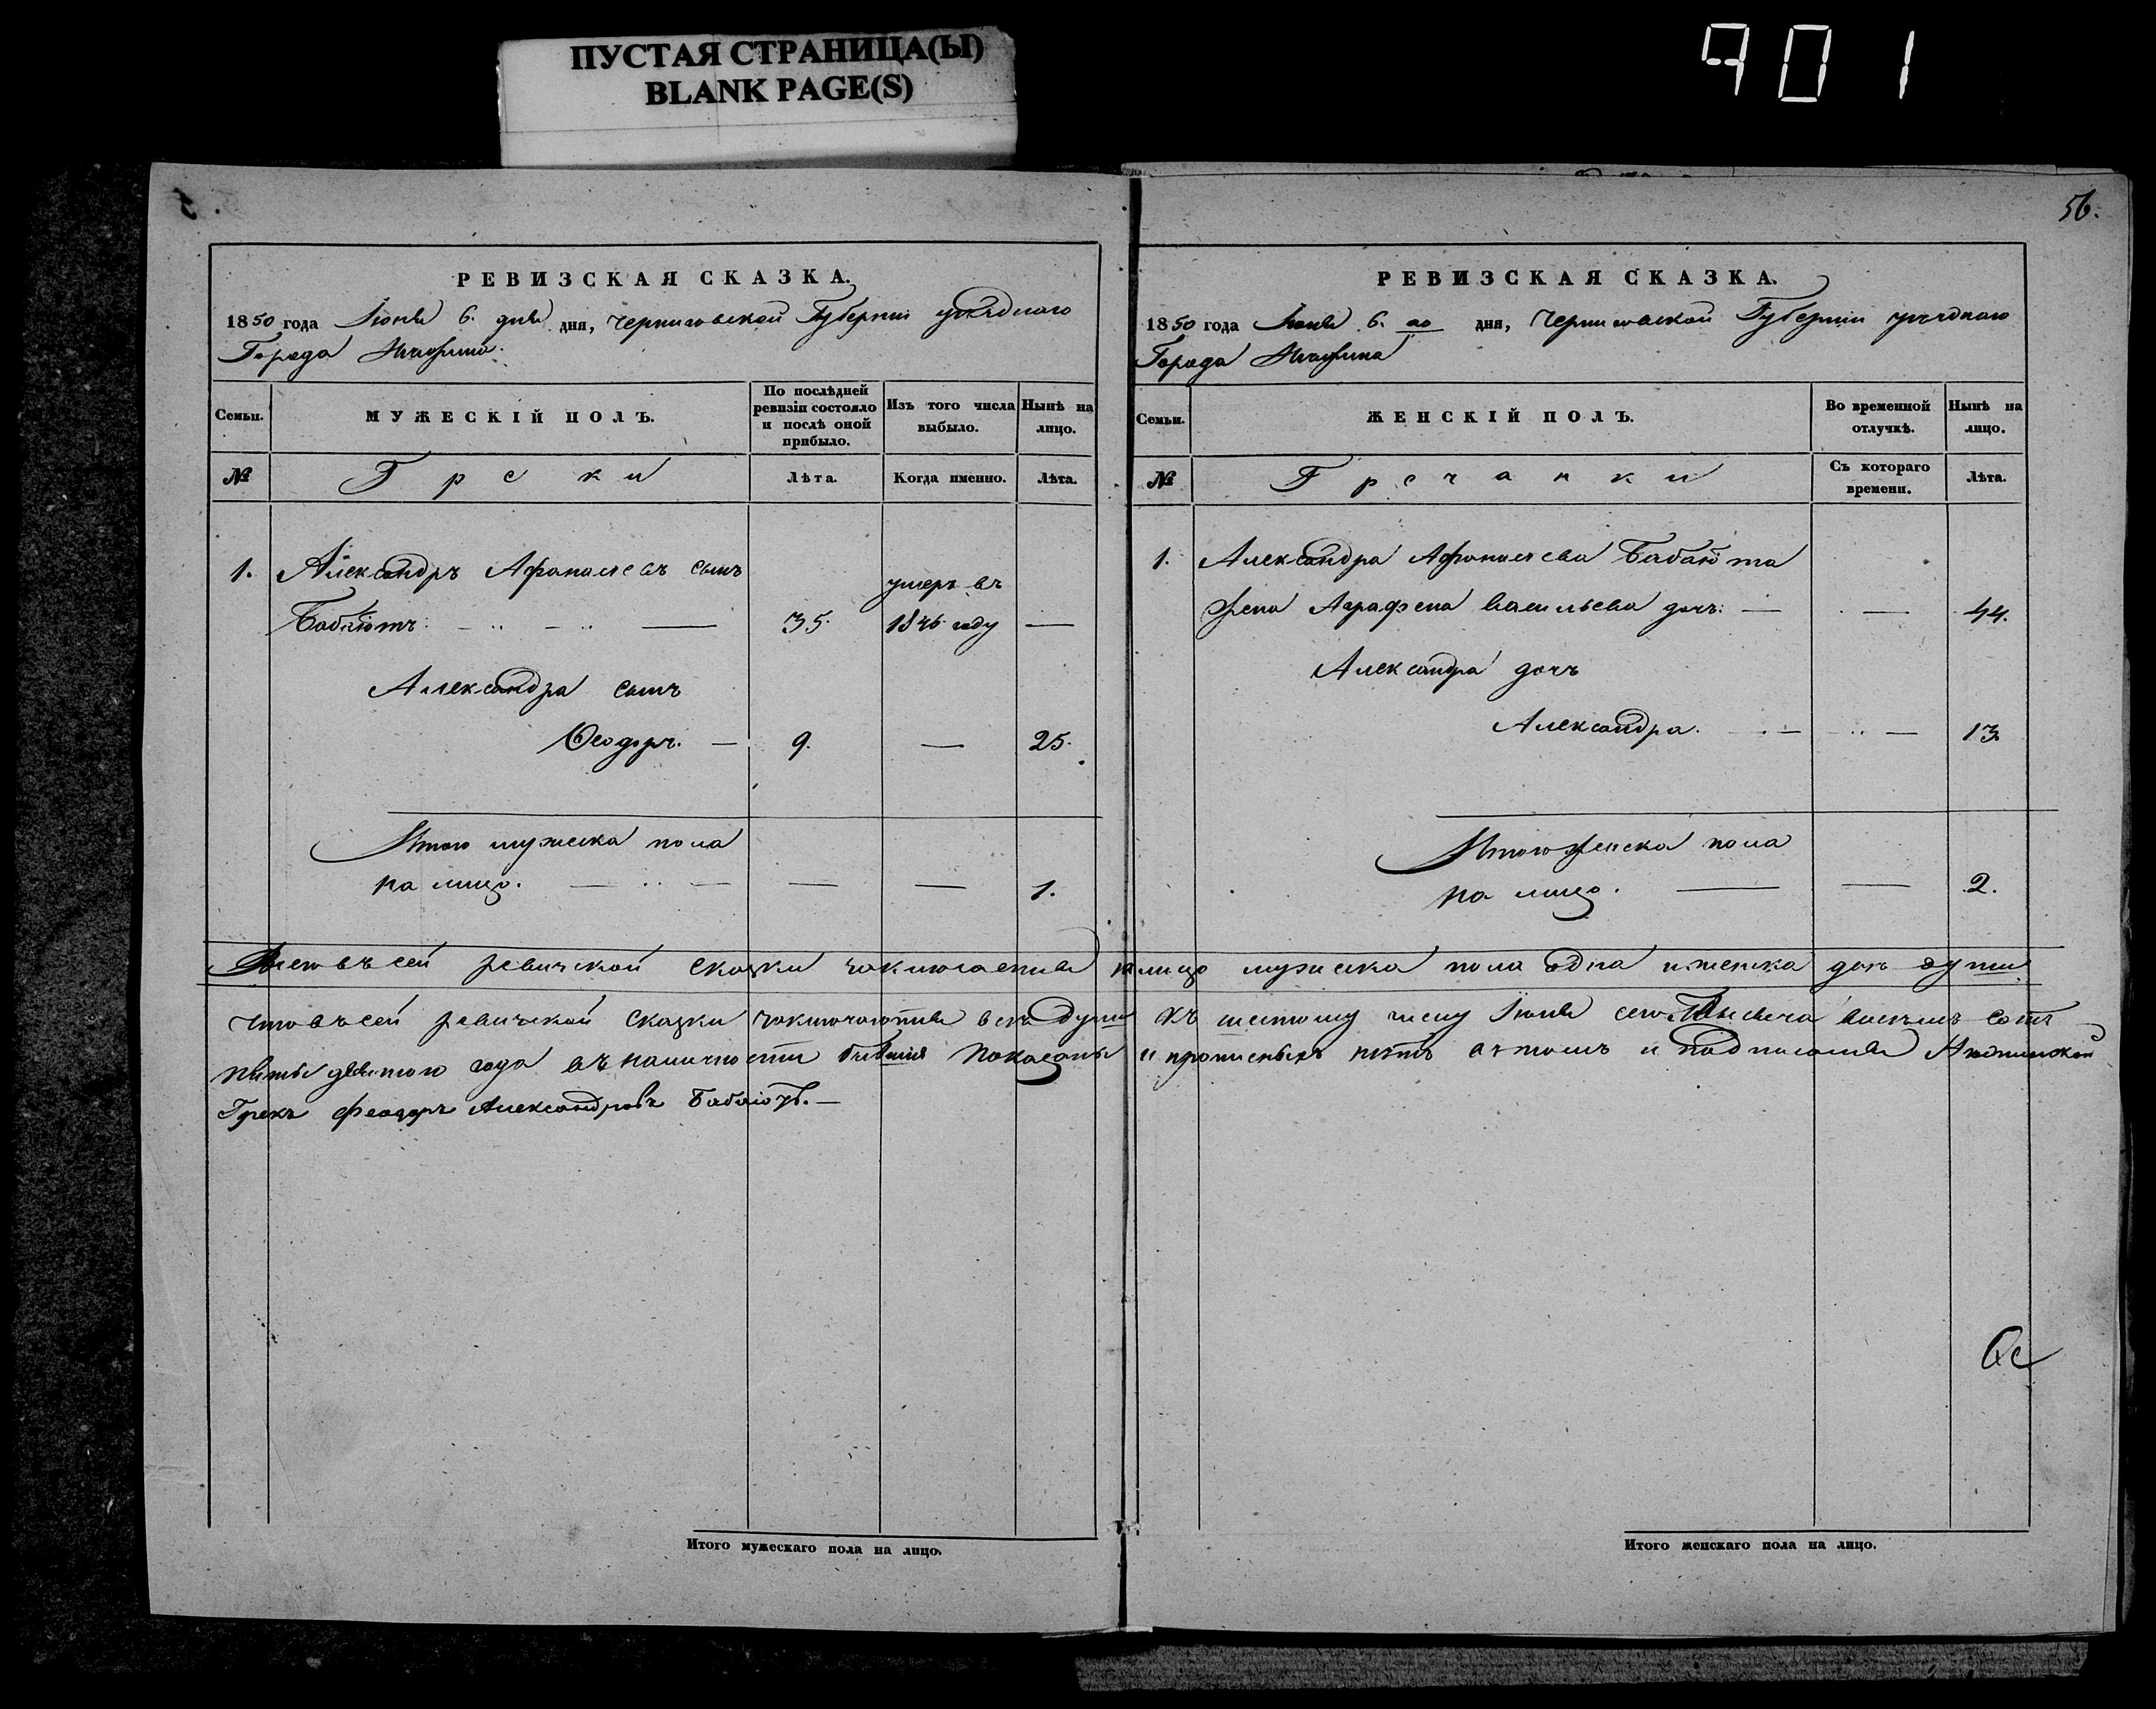 ПУСТАЯ СТРАНИЦА(Ы)
BLANK PAGE(S)
901
РЕВИЗСКАЯ СКАЗКА.
1850 года Іюня 6. дня дня, Черниговской Губерніи уѣзднаго
Города Нѣжина.
Семьи.
МУЖЕСКІЙ ПОЛЪ.
По послѣдней ревизіи состояло и послѣ оной прибыло.
Изъ того числа выбыло.
Нынѣ на лицо.
№
Греки
Лѣта.
Когда именно.
Лѣта.
1. Александръ Афанасьевъ сынъ
умеръ въ
Бабаіотъ. 35. 1846 году —
Александра сынъ
Ѳеодоръ. — 9. — 25.
Итого мужеска пола
на лицо. — — — 1.
56.
РЕВИЗСКАЯ СКАЗКА.
1850 года Іюня 6. го дня, Черниговской Губерніи уѣзднаго
Города Нѣжина
Семьи.
ЖЕНСКІЙ ПОЛЪ.
Во временной отлучкѣ.
Нынѣ на лицо.
№
Гречанки
Съ котораго времени.
Лѣта.
1. Александра Афанасьева Бабаіота
жена Аграфена Васильева дочь. — — 44.
Александра дочь
Александра. — — 13.
Итого женска пола
на лицо. — — 2.
Всего въ сей ревизской сказки заключается на лицо мужеска пола одна и женска двѣ души.
Что въ сей ревизской сказки заключаются всѣ души къ шестому числу Іюня сего Тысяча восемъ сотъ
пятьдесятого года въ наличности бывшія показаны и прописныхъ нѣтъ въ томъ и подписался Нѣжинской
Грекъ Феодоръ Александровъ Бабаіотъ. —
Итого мужескаго пола на лицо.
Итого женскаго пола на лицо.